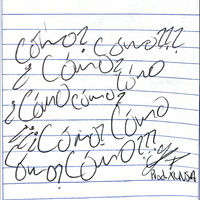 Cómo? Cómo???
¿Cómo? Cómo
¿Cómo cómo?
¿¿Cómo? Cómo
Cómo? Cómo???
Prod. XUNSA